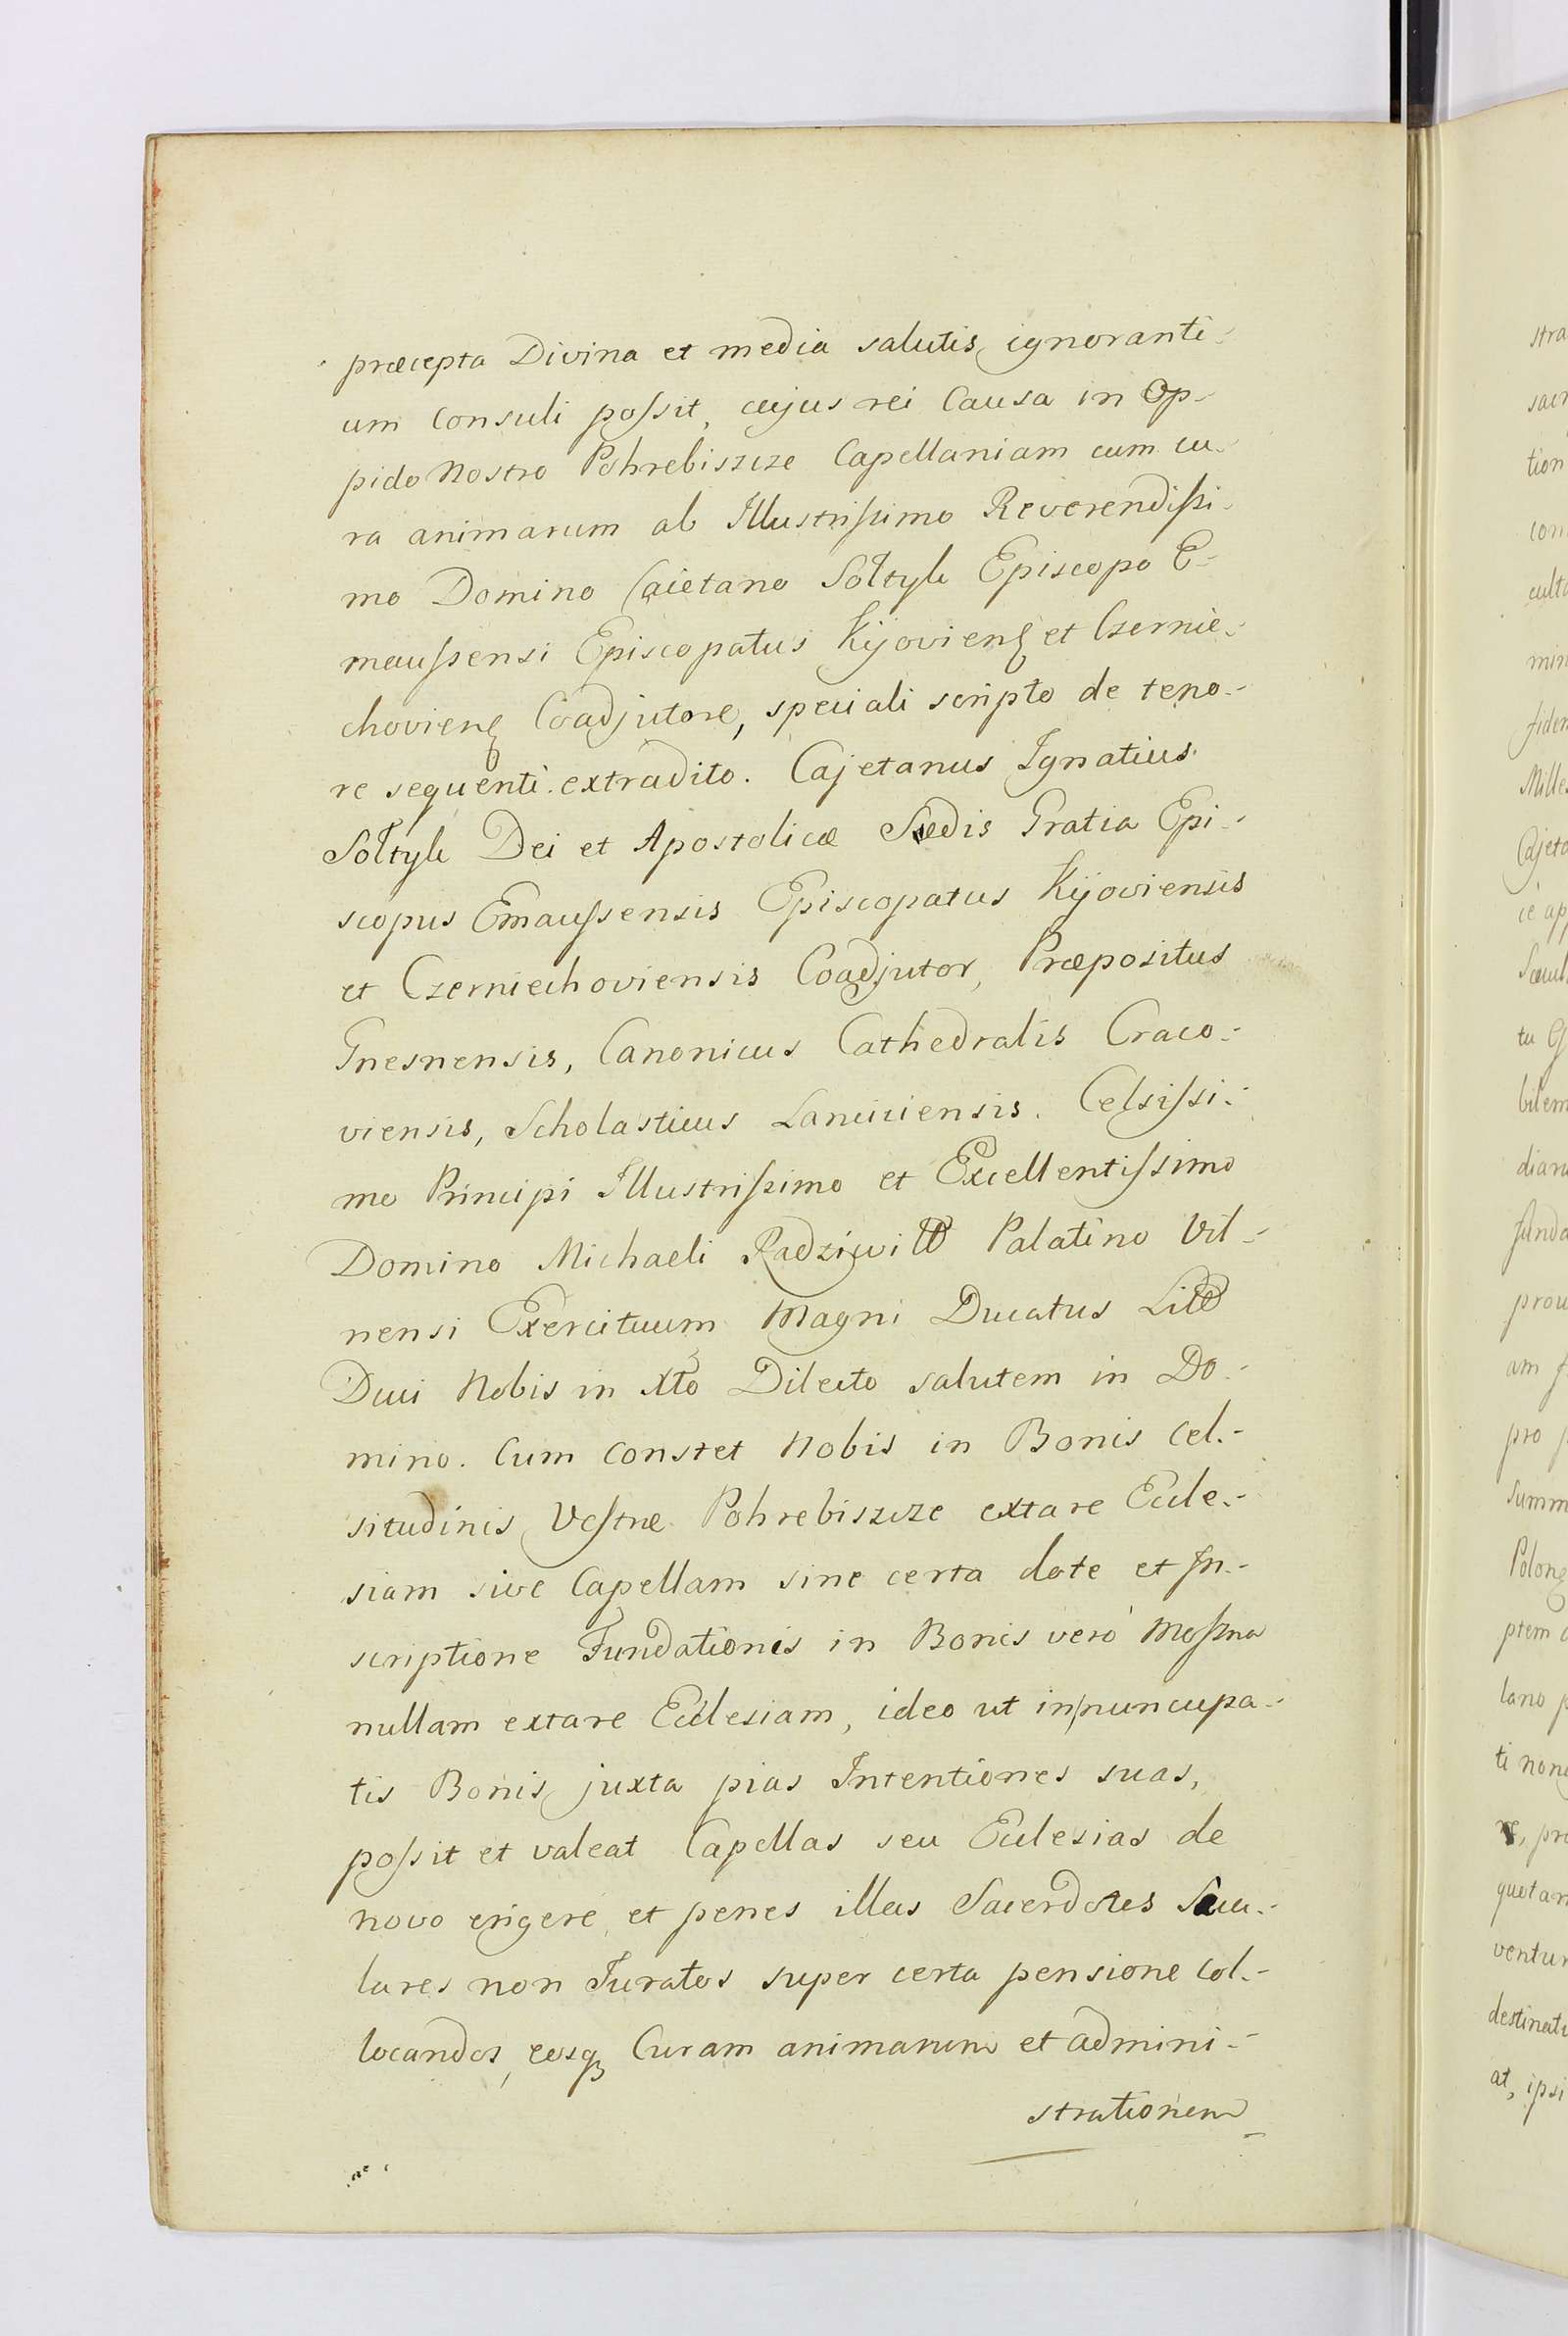 præcepta Divina et media salutis ignoranti-
um Consuli poſsit, cujus rei Causa in Op-
pido Nostro Pohrebiszcze Capellaniam cum cu-
ra animarum ab Illustriſsimo Reverendiſsi-
mo Domino Caietano Sołtyk Episcopo E-
mauſsensi Episcopatus Kijovienſ et Czernie-
chovienſ Coadjutore, speciali scripto de teno-
re sequenti extradito. Cajetanus Ignatius
Sołtyk Dei et Apostolicæ Sædis Gratia Epi-
scopus Emauſsensis Episcopatus Kijoviensis
et Czerniechoviensis Coadjutor, Præpositus
Gnesnensis, Canonicus Cathedralis Craco-
viensis, Scholasticus Lanciciensis. Celsiſsi-
mo Principi Illustriſsimo et Excellentiſsimo
Domino Michaeli Radziwiłł Palatino Vil-
nensi Exercituum Magni Ducatus Litt
Duci Nobis in Xto Dilecto salutem in Do-
mino. Cum Constet Nobis in Bonis Cel-
situdinis Veſtræ Pohrebiszcze extare Eccle-
siam sive Capellam sine certa dote et In-
scriptione Fundationis in Bonis verò Moſzna
nullam extare Ecclesiam, ideo ut in nuncupa-
tis Bonis juxta pias Intentiones suas,
poſsit et valeat Capellas seu Ecclesias de
novo erigere et penes illas Sacerdotes Sæcu-
lares non Juratos super certa pensione Col-
locandos, eosq Curam animarum et admini-
strationem
stra
sacr
tion
con
culta
min
fiden
Milles
Cajeta
bilem
diana
funda
prou
am f
pro
summ
Polonſ
ptem
lano p
ti non
quotan
ventur
destinati
at, ipsi